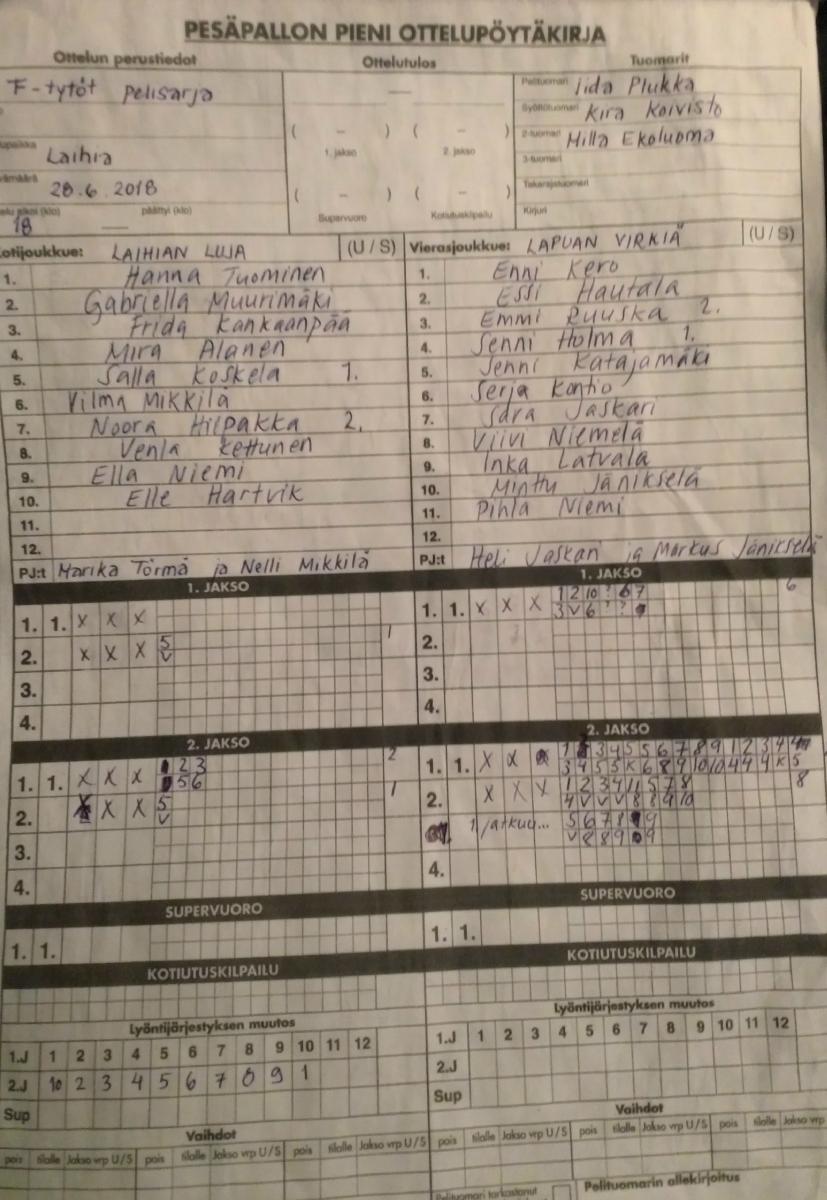 PESÄPALLON PIENI OTTELUPÖYTÄKIRJA
Ottelun perustiedot
Ottelutulos
Tuomarit
F-tytöt pelisarja
Pelituomari Iida Plukka
Syöttötuomari Kira Koivisto
2-tuomari Milla Ekoluoma
3-tuomari
Takarajatuomari
Kirjuri
( – ) ( – )
1. jakso 2. jakso
( – ) ( – )
Supervuoro Kotiutuskilpailu
Laihia
28.6.2018
päättyi (klo)
18 —
Kotijoukkue: LAIHIAN LUJA (U / S)
1. Hanna Tuominen
2. Gabriella Muurimäki
3. Frida Kankaanpää
4. Mira Alanen
5. Salla Koskela 1.
6. Vilma Mikkilä
7. Noora Hilpakka 2.
8. Venla Kettunen
9. Ella Niemi
10. Elle Hartvik
11.
12.
PJ:t Marika Törmä ja Nelli Mikkilä
Vierasjoukkue: LAPUAN VIRKIÄ (U / S)
1. Enni Kero
2. Essi Hautala
3. Emmi Ruuska 2.
4. Senni Holma 1.
5. Jenni Katajamäki
6. Serja Kontio
7. Sara Jaskari
8. Viivi Niemelä
9. Inka Latvala
10. Minttu Jänikselä
11. Pihla Niemi
12.
PJ:t Heli Jaskari ja Markus Jänikselä
1. JAKSO
1. 1. X X X
2. X X X 5 1
V
3.
4.
1. JAKSO
1. 1. X X X 1 2 10 ? 6 7 6
3 V 6 ? ?
2.
3.
4.
2. JAKSO
1. 1. X X X 2 3 2
5 6
2. X X 5 1
V
3.
4.
2. JAKSO
1. 1. X X 1 3 4 5 5 6 7 8 9 1 2 3 4
3 4 5 5 K 6 8 9 10 10 4 4 4 K 5
2. X X X 1 2 3 4 11 5 7 8 8
4 V V V 8 8 9 10
1 jatkuu... 5 6 7 8 9
V 8 8 9 9
4.
SUPERVUORO
1. 1.
SUPERVUORO
1. 1.
KOTIUTUSKILPAILU
KOTIUTUSKILPAILU
Lyöntijärjestyksen muutos
1.J 1 2 3 4 5 6 7 8 9 10 11 12
2.J 10 2 3 4 5 6 7 8 9 1
Sup
Lyöntijärjestyksen muutos
1.J 1 2 3 4 5 6 7 8 9 10 11 12
2.J
Sup
Vaihdot
pois tilalle Jakso vrp U/S pois tilalle Jakso vrp U/S pois tilalle Jakso vrp U/S
Vaihdot
pois tilalle Jakso vrp U/S pois tilalle Jakso vrp U/S pois tilalle Jakso vrp
Pelituomari tarkastanut
Pelituomarin allekirjoitus